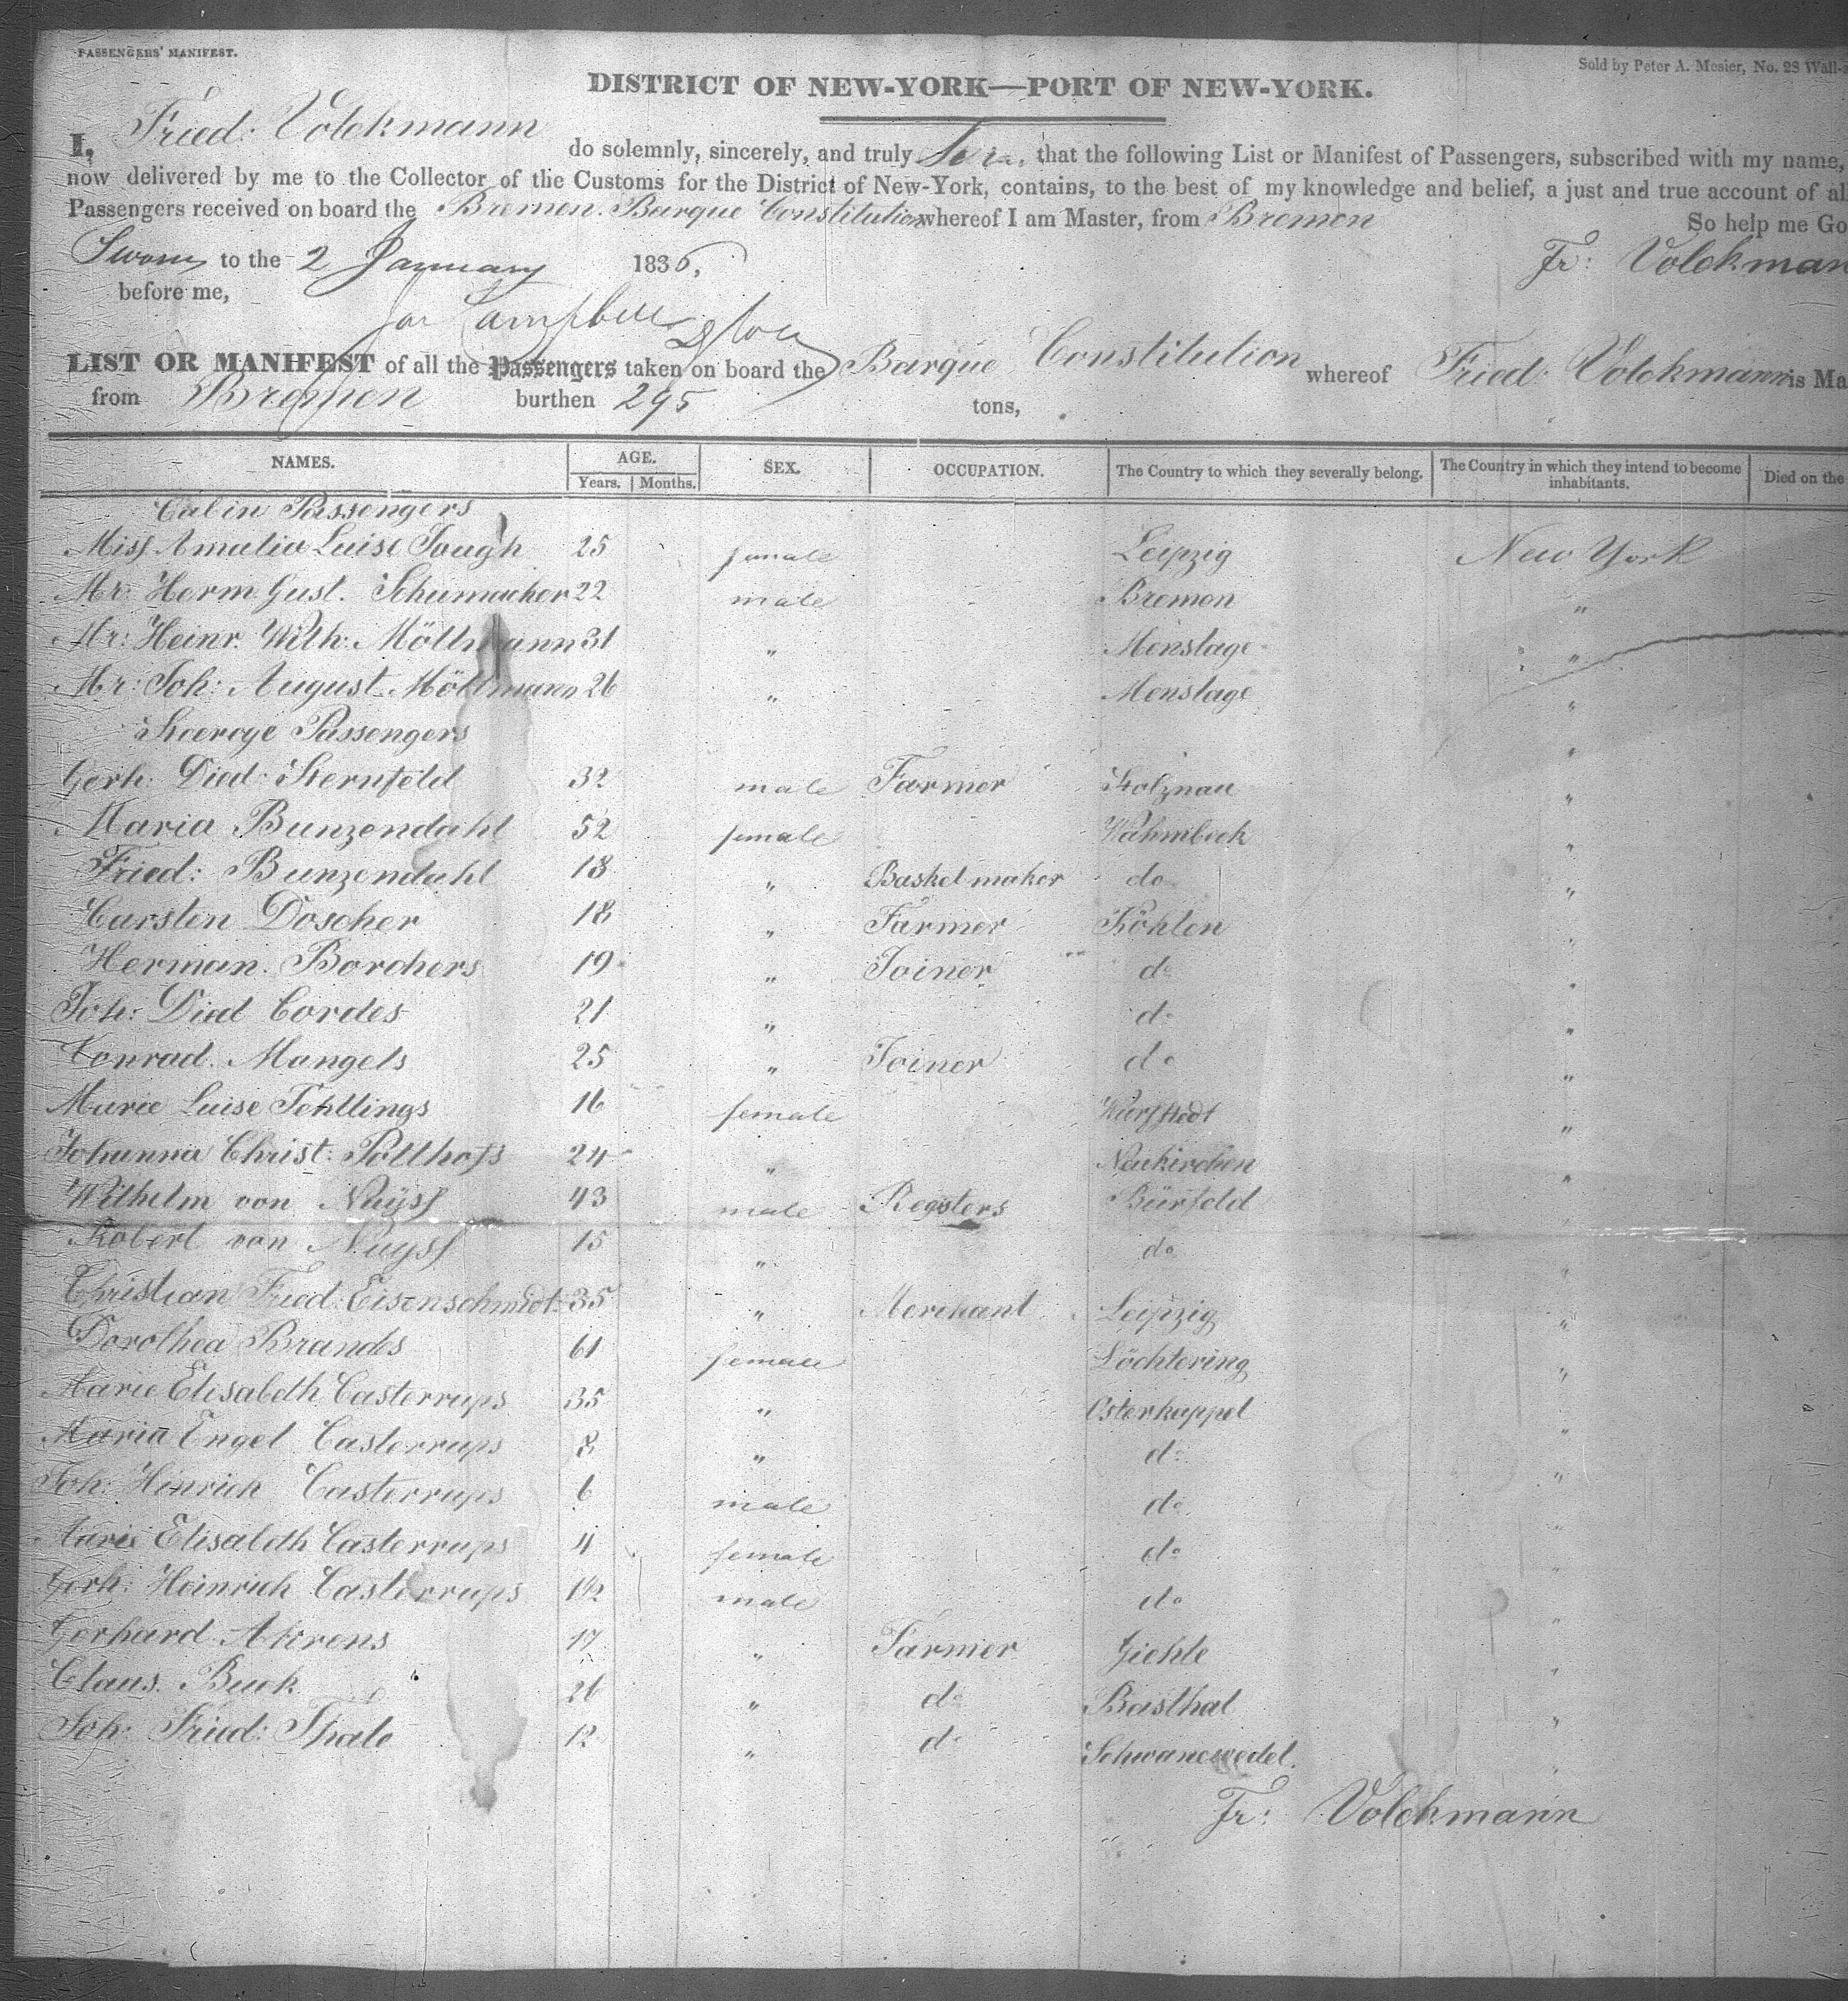 PASSENGERS' MANIFEST.
Sold by Peter A. Mesier, No. 28 Wall-s
DISTRICT OF NEW-YORK—PORT OF NEW-YORK.
I, Fried: Volckmann do solemnly, sincerely, and truly that the following List or Manifest of Passengers, subscribed with my name,
now delivered by me to the Collector of the Customs for the District of New-York, contains, to the best of my knowledge and belief, a just and true account of al
Passengers received on board the Bremen Barque Constitution whereof I am Master, from Bremen So help me Go
Sworn to the 2 January 1836, Fr: Volckman
before me,
Campbell
LIST OR MANIFEST of all the Passengers taken on board the Barque Constitution whereof Fried: Volckmann is Ma
from Bremen burthen 295 tons,
NAMES. AGE. SEX. OCCUPATION. The Country to which they severally belong. The Country in which they intend to become inhabitants. Died on the
Years. Months.
Cabin Passengers
Miss Amalia Luise Tough 25 female Leipzig New York
Mr: Herm Gust. Schumacher 22 male Bremen "
Mr: Heinr. Wilh: Möllmann 31 " Menslage "
Mr: Joh: August Möllmann 26 " Menslage "
Steerage Passengers "
Gerh: Died: Sternfeld 32 male Farmer Stolznau "
Maria Bunzendahl 52 female Wahmbeck "
Fried: Bunzendahl 18 " Basket maker do "
Carsten Doscher 18 " Farmer Köhlen "
Herman Borchers 19 " Joiner do "
Joh: Died Cordes 21 " do "
Conrad Mangels 25 " Joiner do "
Marie Luise Tehllings 16 female "
Johanna Christ: Potthoff 24 " Neukirchen "
Wilhelm von Nuyss 43 male Registers Bürfeld
Robert von Nuyss 15 " do "
Christian Fried: Eisenschmidt 35 " Merchant Leipzig "
Dorothea Brands 61 female Löchtering "
Marie Elisabeth Casterrups 35 " Osterkappel "
Maria Engel Casterrups 8 " do "
Joh: Hinrich Casterrups 6 male do "
Marie Elisabeth Casterrups 4 female do "
Gerh: Heinrich Casterrups 1½ male do "
Gerhard Ahrens 17 " Farmer Giehle "
Claus Buck 26 " do Basthal "
Joh: Fried: Thale 12 " do Schwanewedel "
Fr: Volckmann